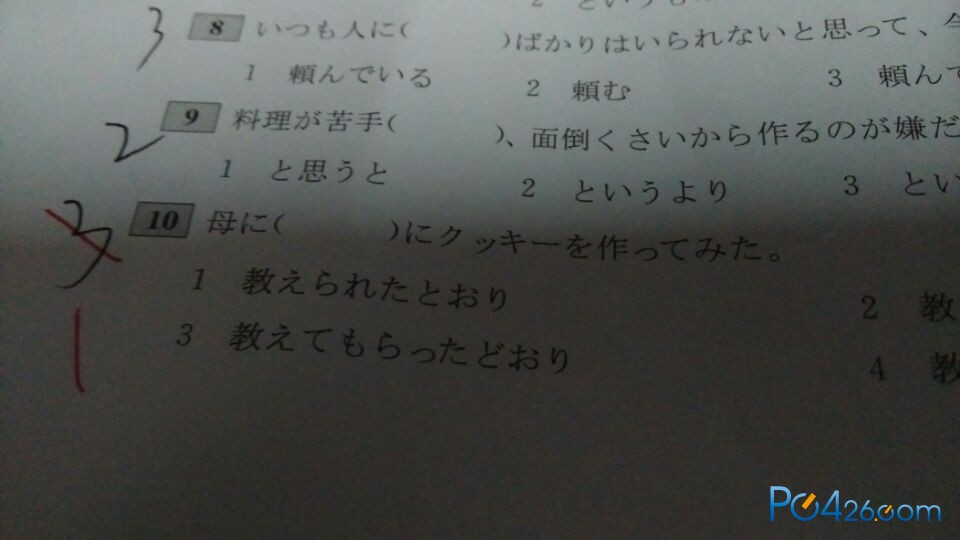 3 8 いつも人に( )ばかりはいられないと思って、
1 頼んでいる 2 頼む 3 頼んで
2 9 料理が苦手( )、面倒くさいから作るのが嫌だ
1 と思うと 2 というより 3 とい
3 10 母に( )にクッキーを作ってみた。
1 教えられたとおり 2 教
1 3 教えてもらったどおり 4 教
PC426.com